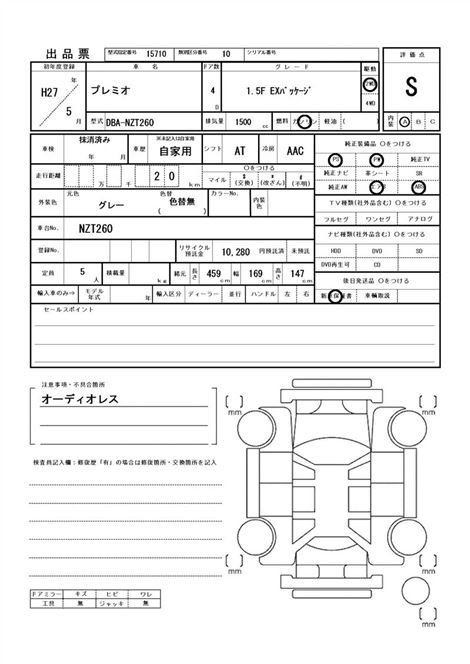 出品票 型式指定番号 15710 類別区分番号 10 シリアル番号
初年度登録 車名 ドア数 グレード 駆動 評価点
H27 年 5 月 プレミオ 4 D 1.5F EXパッケージ 2WD 4WD S
型式 DBA-NZT260 排気量 1500 cc 燃料 ガソリン 軽油 ( ) 内装 A B C
車検 抹消済み 年 月 車歴 ※未記入は自家用 自家用 シフト AT 冷房 AAC
純正装備品 Oをつける
PS PW 純正TV
走行距離 十万 万 千 2 0 km Oをつける マイル $ (交換) * (改ざん) # (不明)
純正ナビ 革シート SR
純正AW エアB ABS
外装色 元色 グレー 色替 色替無 ( ) カラーNo. 内装色
TV種類(社外品含む) Oをつける
フルセグ ワンセグ アナログ
車台No. NZT260
ナビ種類(社外品含む) Oをつける
登録No. リサイクル預託金 10,280 円預託済 未預託
HDD DVD SD
DVD再生可 CD
定員 5 人 積載量 kg 諸元 長さ 459 cm 幅 169 cm 高さ 147 cm
後日発送品 Oをつける
輸入車のみ⇒ モデル年式 年 輸入区分 ディーラー 並行 ハンドル 左 右
新車保証書 車輌取説
セールスポイント
注意事項・不具合箇所
オーディオレス
検査員記入欄:修復歴「有」の場合は修復箇所・交換箇所を記入
[ ] mm [ ] mm
[ ] mm [ ] mm
[ ] mm
Fアミラー キズ ヒビ ワレ
工具 無 ジャッキ 無